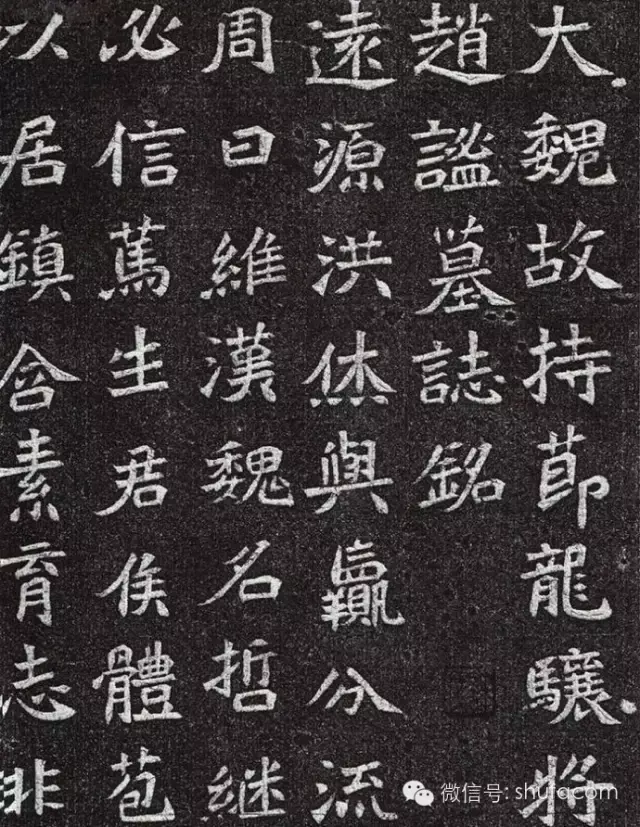 大魏故持節龍驤將
趙謐墓誌銘
遠源洪休與贏分流
周曰維漢魏名哲継
必信篤生君侯體苞
以居鎮含素育志非
微信号: shufacom